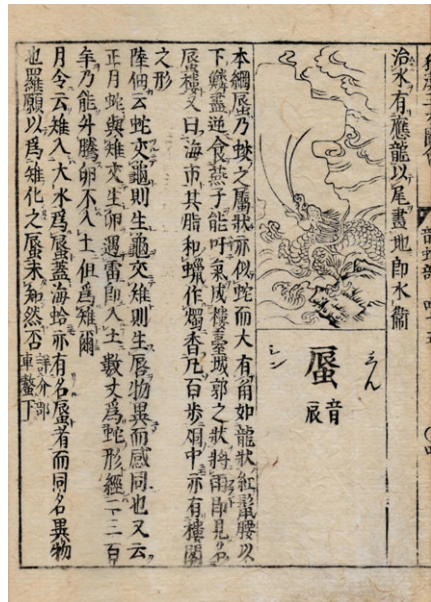 龍蛇部
治水有應龍以尾畫地即水衜
しん
蜃
音辰
シン
本綱蜃乃蛟之屬狀亦似蛇而大有角如龍狀紅鬣腰以
下鱗盡逆食燕子能吁氣成樓臺城郭之狀將雨即見名
蜃樓又曰海市其脂和蠟作燭香凡百歩烟中亦有樓閣
之形
陸佃云蛇交龜則生龜交雉則生蜃物異而感同也又云
正月蛇與雉交生卵遇雷即入土數丈爲蛇形經二三百
年乃能升騰卵不入土但爲雉爾
月令云雉入大水爲蜃蓋海蛤亦有名蜃者而同名異物
也羅願以爲雉化之蜃未知然否
詳于介部
車螯下